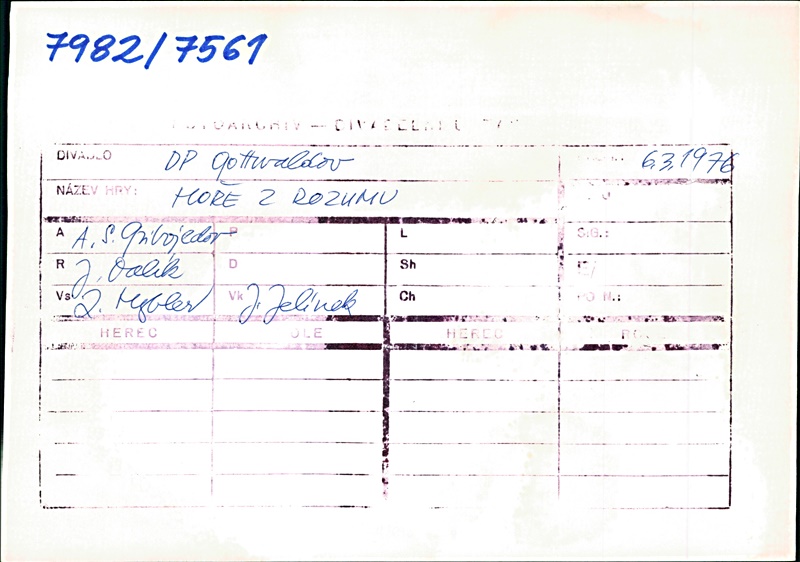 7982/7561
FOTOARCHIV — DIVADELNÍ ÚSTAV
DIVADLO DP Gottwaldov 6.3.1976
NÁZEV HRY: HOŘE Z ROZUMU
A A. S. Gribojedov P L SIG.:
R J. Dalík D Sh
Vs Z. Hybler Vk J. Jelínek Ch PO N.:
HEREC ROLE HEREC ROLE